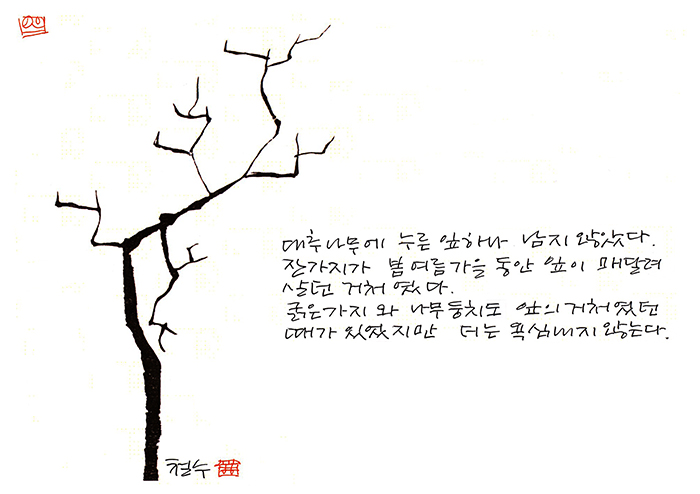 대추나무에 누른 잎하나 남지 않았다.
잔가지가 봄여름가을 동안 잎이 매달려
살던 거처 였다.
굵은가지 와 나무둥치도 잎의 거처였던
때가 있었지만 더는 욕심내지 않는다.
철수